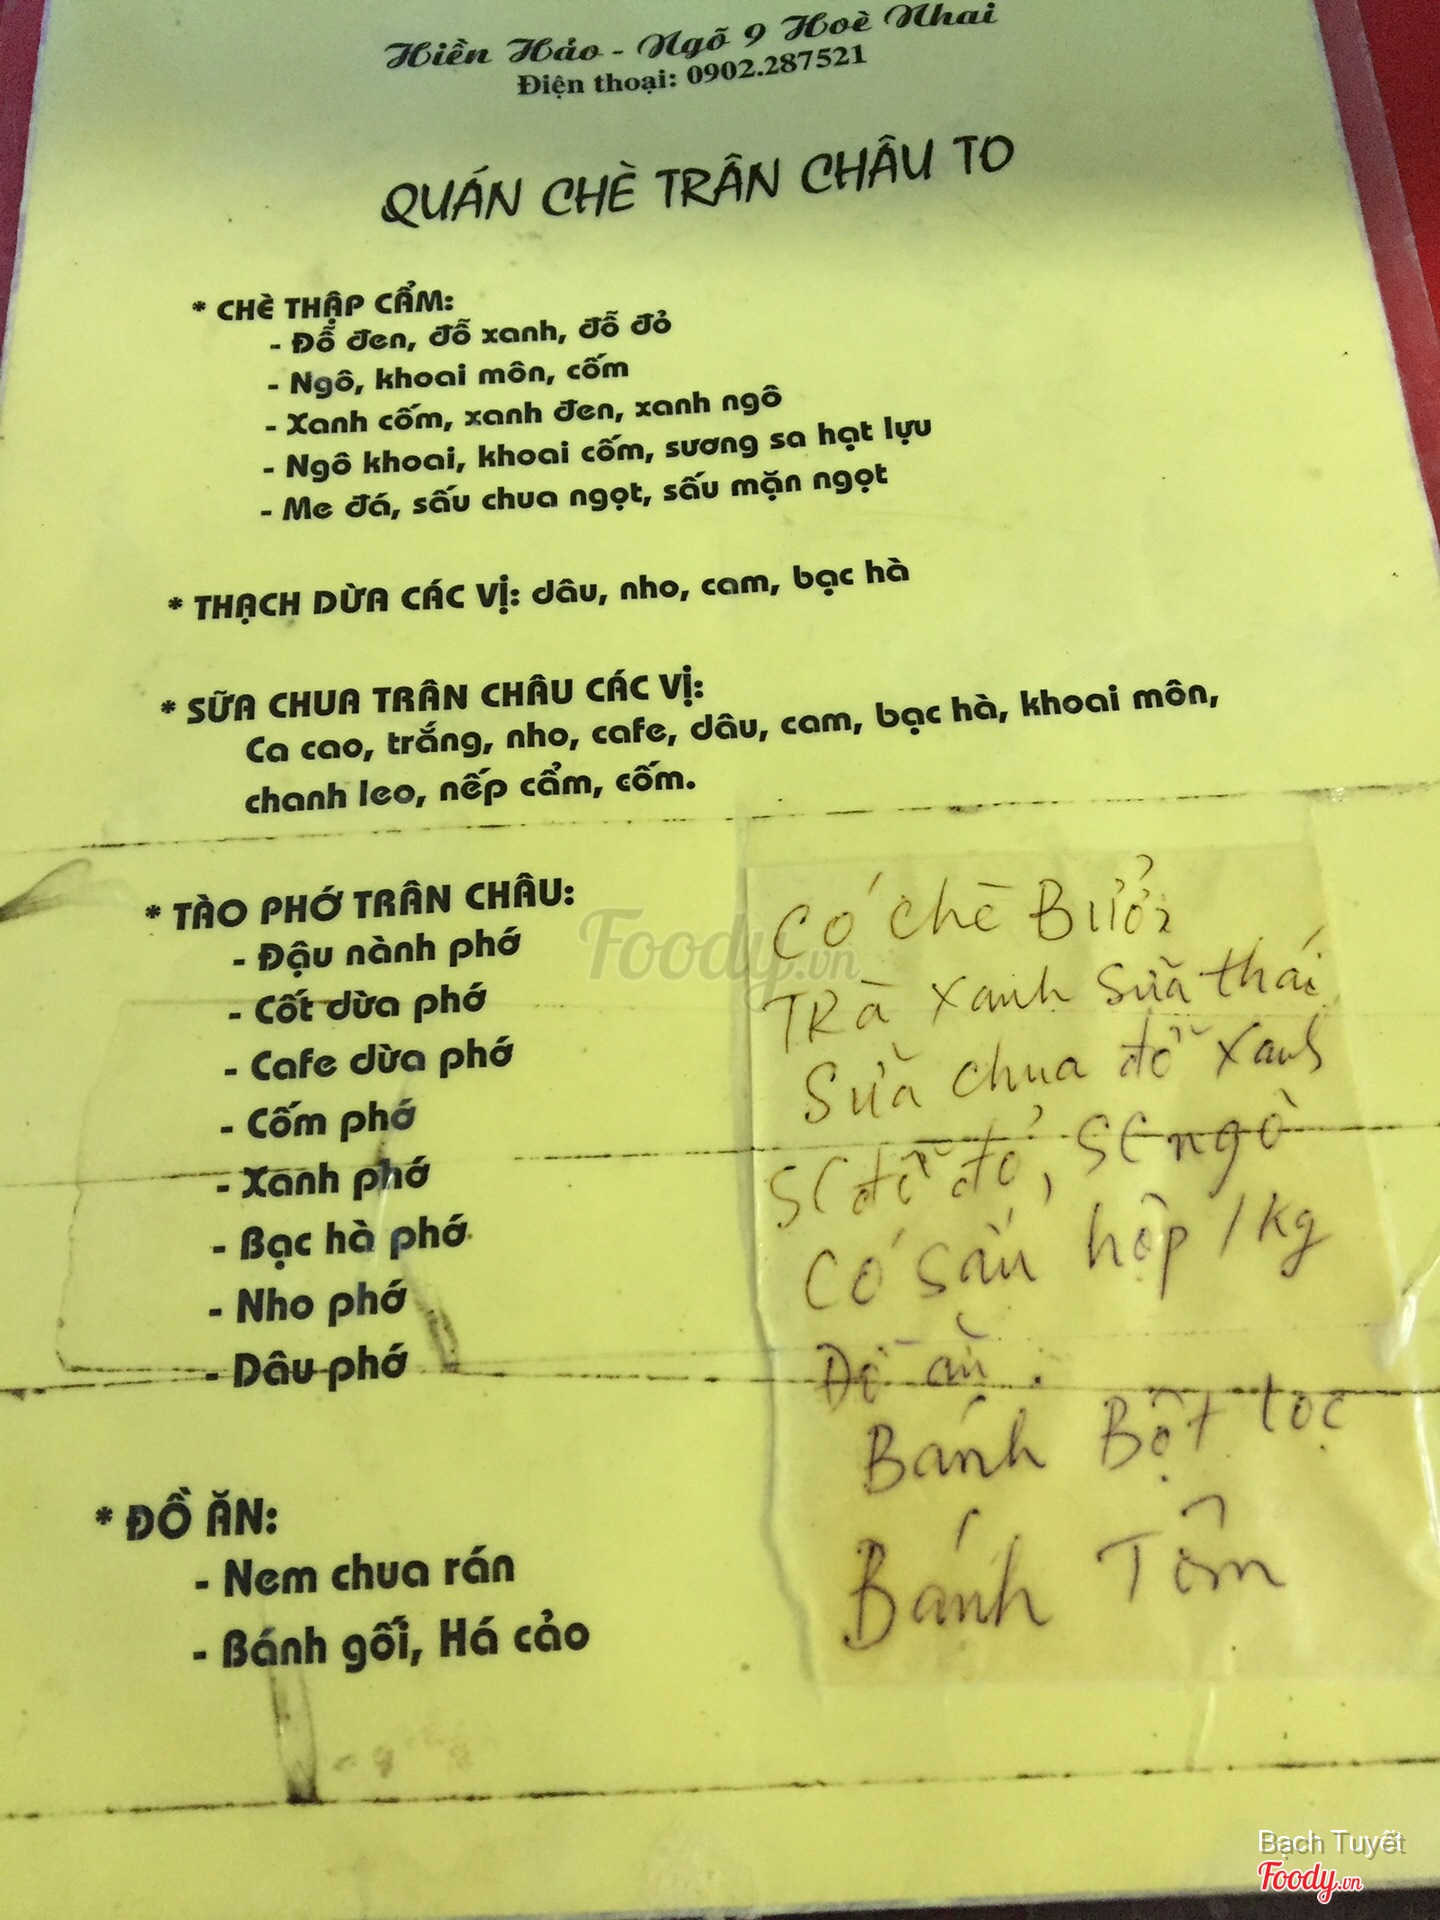 Hiền Hảo - Ngõ 9 Hoè Nhai
Điện thoại: 0902.287521
QUÁN CHÈ TRÂN CHÂU TO
* CHÈ THẬP CẨM:
- Đỗ đen, đỗ xanh, đỗ đỏ
- Ngô, khoai môn, cốm
- Xanh cốm, xanh đen, xanh ngô
- Ngô khoai, khoai cốm, sương sa hạt lựu
- Me đá, sấu chua ngọt, sấu mặn ngọt
* THẠCH DỪA CÁC VỊ: dâu, nho, cam, bạc hà
* SỮA CHUA TRÂN CHÂU CÁC VỊ:
Ca cao, trắng, nho, cafe, dâu, cam, bạc hà, khoai môn,
chanh leo, nếp cẩm, cốm.
* TÀO PHỚ TRÂN CHÂU:
- Đậu nành phớ
- Cốt dừa phớ
- Cafe dừa phớ
- Cốm phớ
- Xanh phớ
- Bạc hà phớ
- Nho phớ
- Dâu phớ
* ĐỒ ĂN:
- Nem chua rán
- Bánh gối, Há cảo
Có chè Bưởi
TRà xanh sữa thái
Sữa chua đỗ xanh
SC đỗ đỏ, SC ngô
Có sấu hộp / kg
Đồ ăn.
Bánh Bột lọc
Bánh Tôm
Foody.vn
Bạch Tuyết
Foody.vn